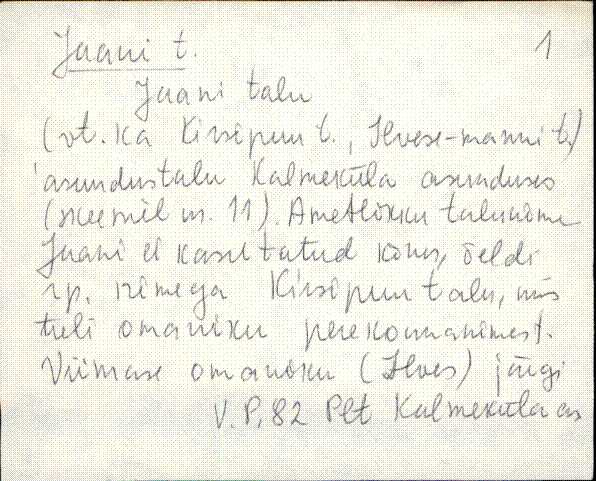 Jaani t. 1
Jaani talu
(vt. ka Kirsipuu t., Ilvese-manni t.)
asundustalu Kalmeküla asunduses
(skeemil nr. 11). Ametlikku talunime
Jaani ei kasutatud kõnes, öeldi
rp. nimega Kirsipuu talu, mis
tuli omaniku perekonnanimest.
Viimase omaniku (Ilves) järgi
V.P, 82 Plt Kalmeküla as